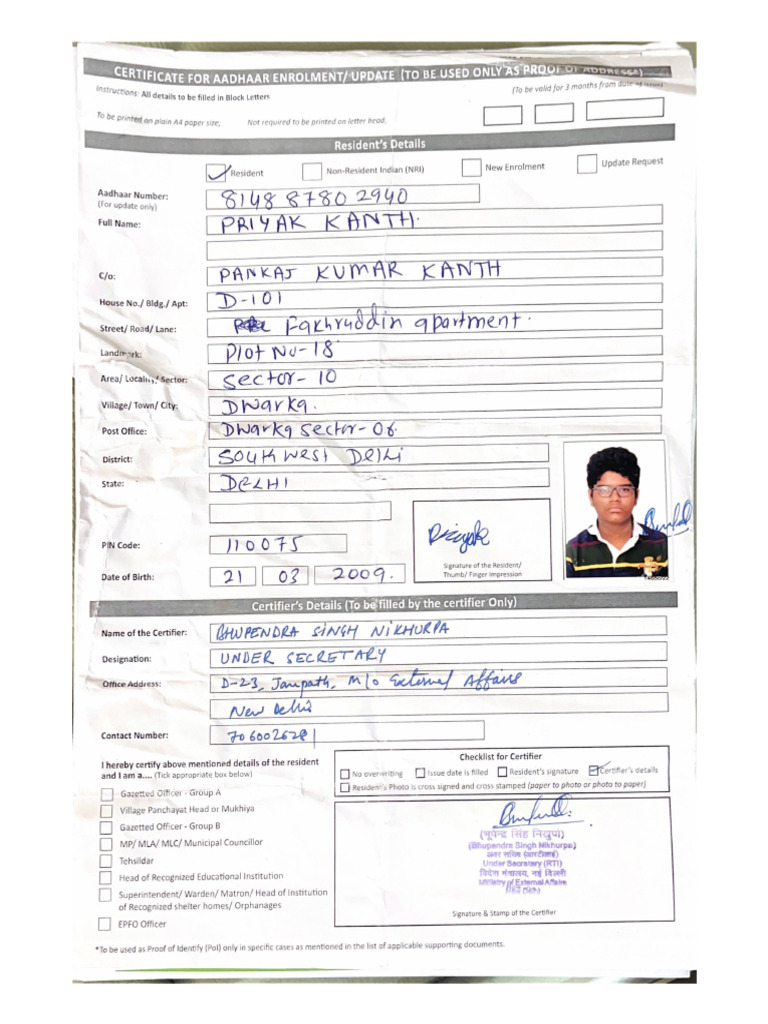 CERTIFICATE FOR AADHAAR ENROLMENT/ UPDATE (TO BE USED ONLY AS PROOF OF ADDRESS*)
Instructions: All details to be filled in Block Letters
(To be valid for 3 months from date of issue)
To be printed on plain A4 paper size; Not required to be printed on letter head.
Resident's Details
Resident Non-Resident Indian (NRI) New Enrolment Update Request
Aadhaar Number: 8148 8780 2940
(For update only)
Full Name: PRIYAK KANTH.
C/o: PANKAJ KUMAR KANTH
House No./ Bldg./ Apt: D-101
Street/ Road/ Lane: Fakhruddin apartment.
Landmark: Plot No-18
Area/ Locality/ Sector: Sector-10
Village/ Town/ City: Dwarka.
Post Office: Dwarka Sector-06.
District: South West Delhi
State: DELHI
PIN Code: 110075
Priyak
Signature of the Resident/
Thumb/ Finger Impression
Date of Birth: 21 03 2009.
Certifier's Details (To be filled by the certifier Only)
Name of the Certifier: BHUPENDRA SINGH NIKHURPA
Designation: UNDER SECRETARY
Office Address: D-23, Janpath, M/o External Affairs
New Delhi
Contact Number: 7060026281
I hereby certify above mentioned details of the resident
and I am a.... (Tick appropriate box below)
Gazetted Officer - Group A
Village Panchayat Head or Mukhiya
Gazetted Officer - Group B
MP/ MLA/ MLC/ Municipal Councillor
Tehsildar
Head of Recognized Educational Institution
Superintendent/ Warden/ Matron/ Head of Institution
of Recognized shelter homes/ Orphanages
EPFO Officer
Checklist for Certifier
No overwriting Issue date is filled Resident's signature Certifier's details
Resident's Photo is cross signed and cross stamped (paper to photo or photo to paper)
(भूपेन्द्र सिंह निखुर्पा)
(Bhupendra Singh Nikhurpa)
अवर सचिव (आरटीआई)
Under Secretary (RTI)
विदेश मंत्रालय, नई दिल्ली
Ministry of External Affairs
Signature & Stamp of the Certifier
*To be used as Proof of Identify (PoI) only in specific cases as mentioned in the list of applicable supporting documents.